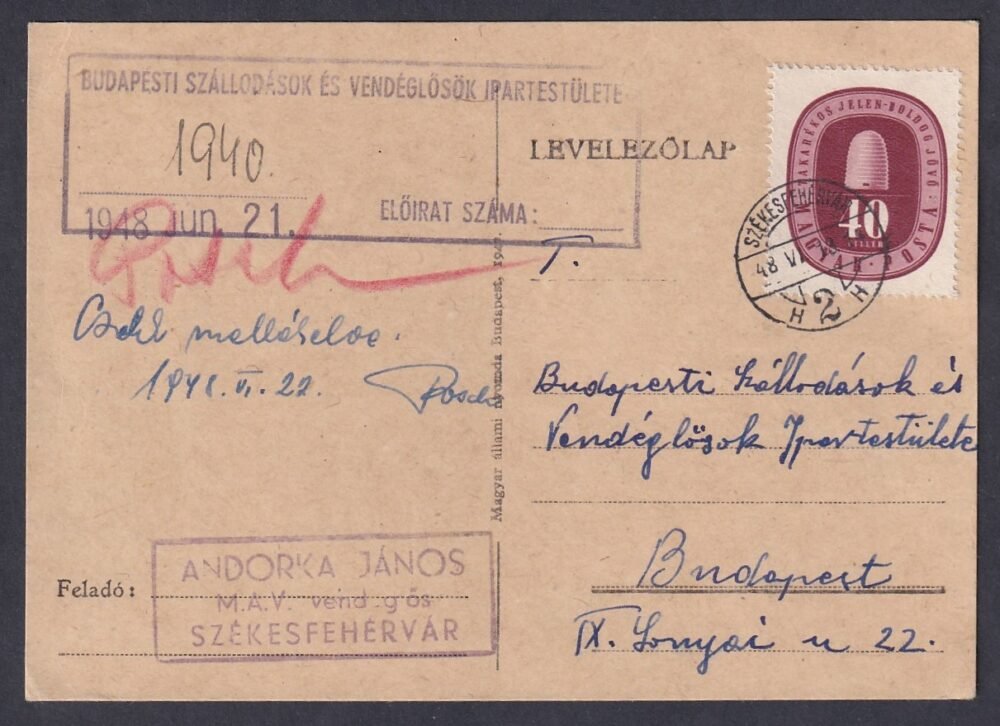 BUDAPESTI SZÁLLODÁSOK ÉS VENDÉGLŐSÖK IPARTESTÜLETE
1940.
1948 JUN 21.
ELŐIRAT SZÁMA:
LEVELEZŐLAP
TAKARÉKOS JELEN-BOLDOG JÖVŐ
40
FILLÉR
MAGYAR POSTA
SZÉKESFEHÉRVÁR
48 VI
H 2 H
T.
1948. VI. 22.
Magyar állami nyomda Budapest, 194
Budapesti Szállodások és
Vendéglősök Ipartestülete
Budapest
IX. Lonyai u 22.
Feladó:
ANDORKA JÁNOS
M.A.V. vend.g ős
SZÉKESFEHÉRVÁR